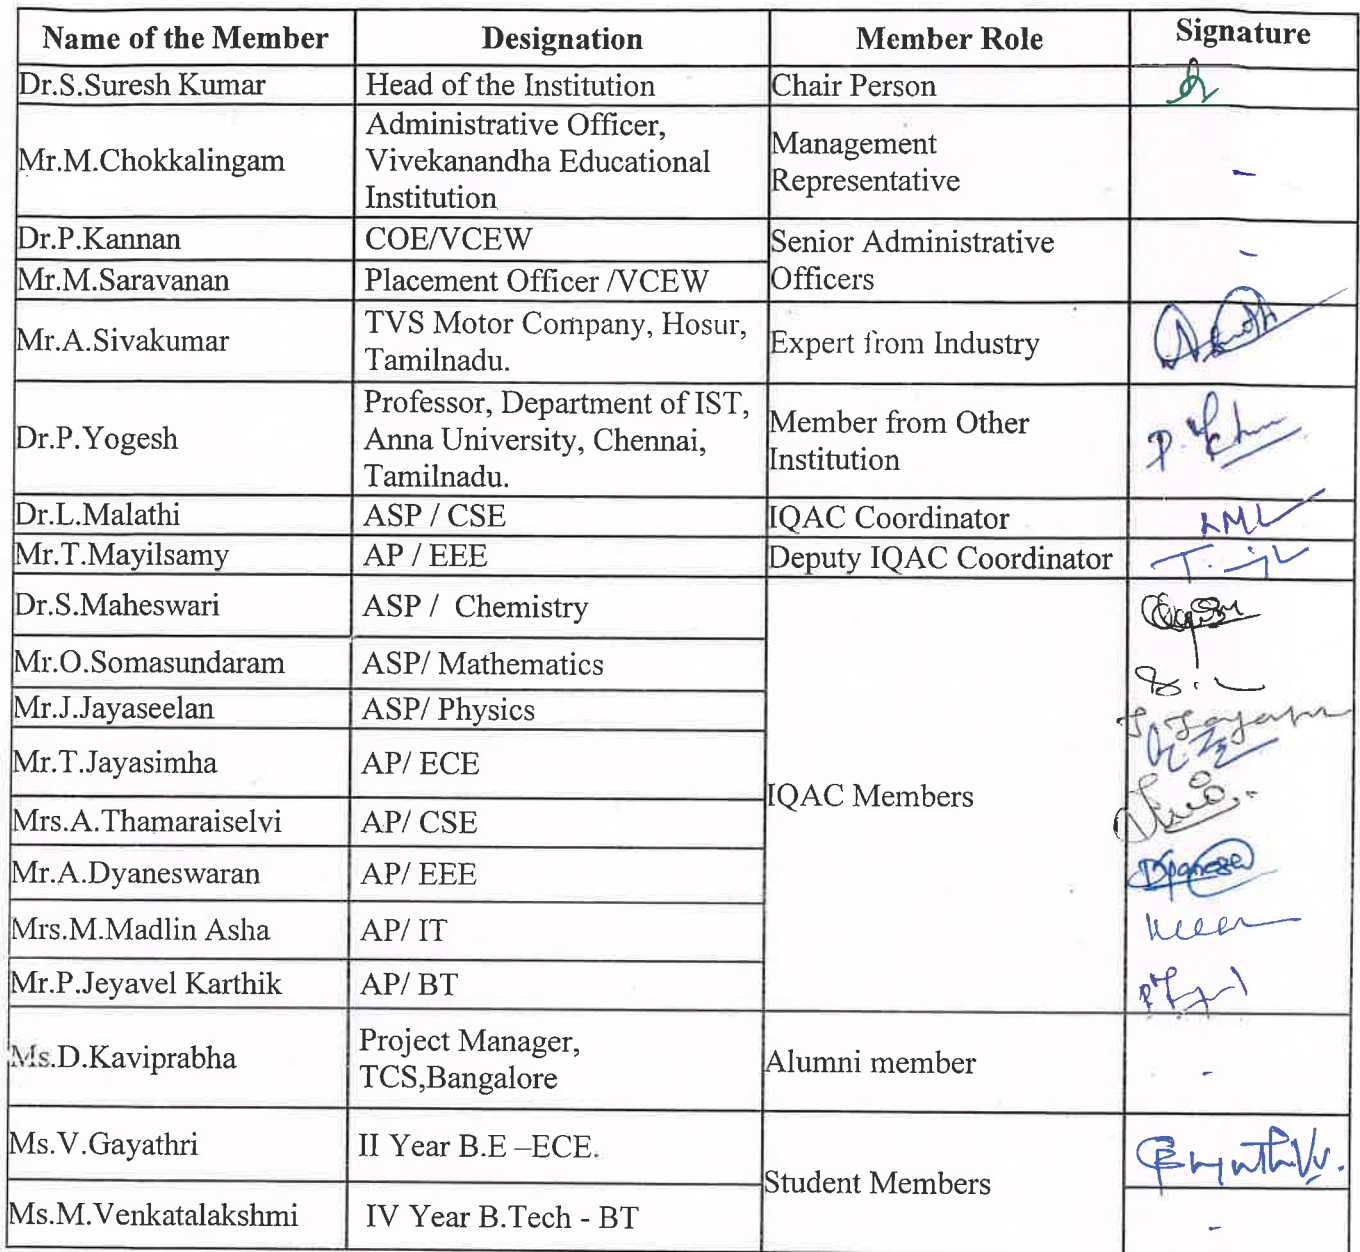 Name of the Member Designation Member Role Signature
Dr.S.Suresh Kumar Head of the Institution Chair Person
Mr.M.Chokkalingam Administrative Officer,
Vivekanandha Educational
Institution
Management
Representative
-
Dr.P.Kannan COE/VCEW
Mr.M.Saravanan Placement Officer /VCEW
Senior Administrative
Officers
-
Mr.A.Sivakumar TVS Motor Company, Hosur,
Tamilnadu.
Expert from Industry
Dr.P.Yogesh Professor, Department of IST,
Anna University, Chennai,
Tamilnadu.
Member from Other
Institution
Dr.L.Malathi ASP / CSE IQAC Coordinator
Mr.T.Mayilsamy AP / EEE Deputy IQAC Coordinator
Dr.S.Maheswari ASP / Chemistry
Mr.O.Somasundaram ASP/ Mathematics
Mr.J.Jayaseelan ASP/ Physics
Mr.T.Jayasimha AP/ ECE
IQAC Members
Mrs.A.Thamaraiselvi AP/ CSE
Mr.A.Dyaneswaran AP/ EEE
Mrs.M.Madlin Asha AP/ IT
Mr.P.Jeyavel Karthik AP/ BT
Ms.D.Kaviprabha Project Manager,
TCS,Bangalore
Alumni member
-
Ms.V.Gayathri II Year B.E –ECE.
Student Members
Ms.M.Venkatalakshmi IV Year B.Tech - BT
-